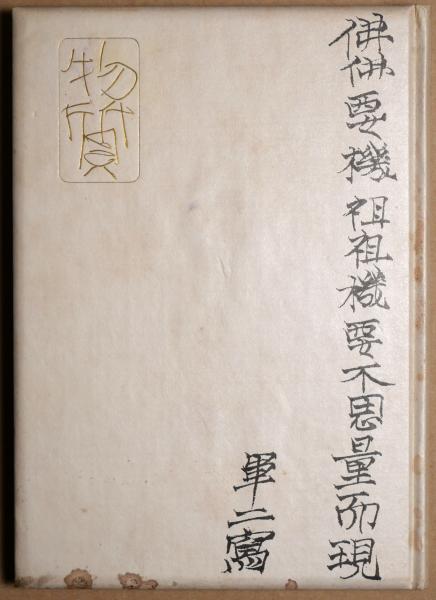 佛佛要機祖祖機要不思量而現
隼二寫
物質